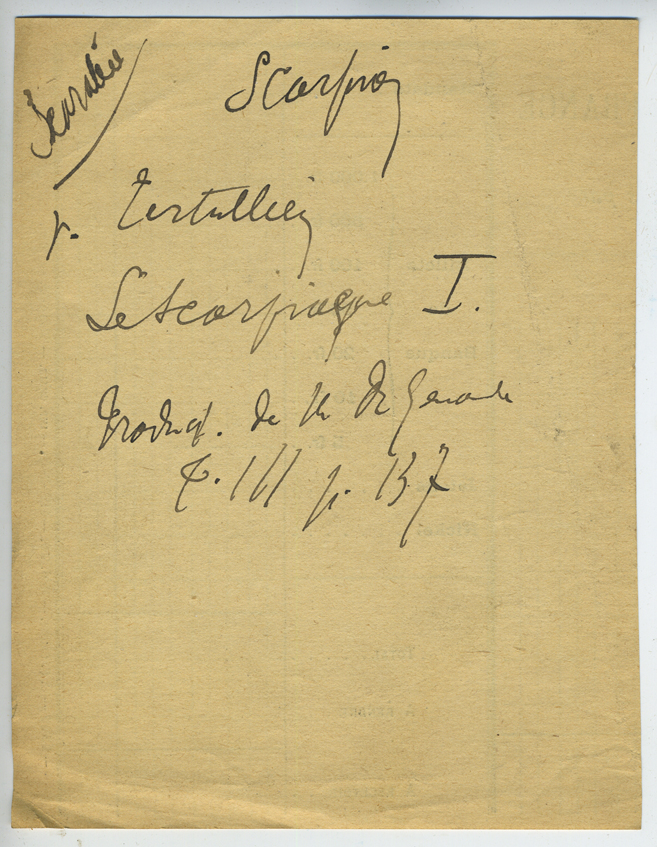 Scarabée
Scorpion
v. Tertullien
Le scorpiaque I.
Traduct. de M. De Genoude
T. III p. 137